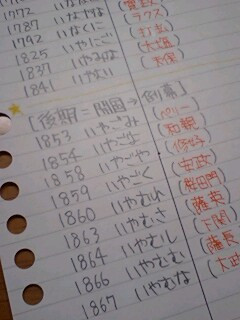 1772 いななに
1787 いなくな (ラクス)
1792 いなくに (打払)
1825 いやにご (大塩)
1837 いやみな (天保)
1841 いやよい
[後期=開国→倒幕]
1853 いやごみ (ペリー)
1854 いやごよ (和親)
1858 いやごや (修好)
1859 いやごく (安政)
1860 いやむれ (桜田門)
1863 いやむさ (薩英)
1864 いやむし (下関)
1866 いやむむ (薩長)
1867 いやむな (大政